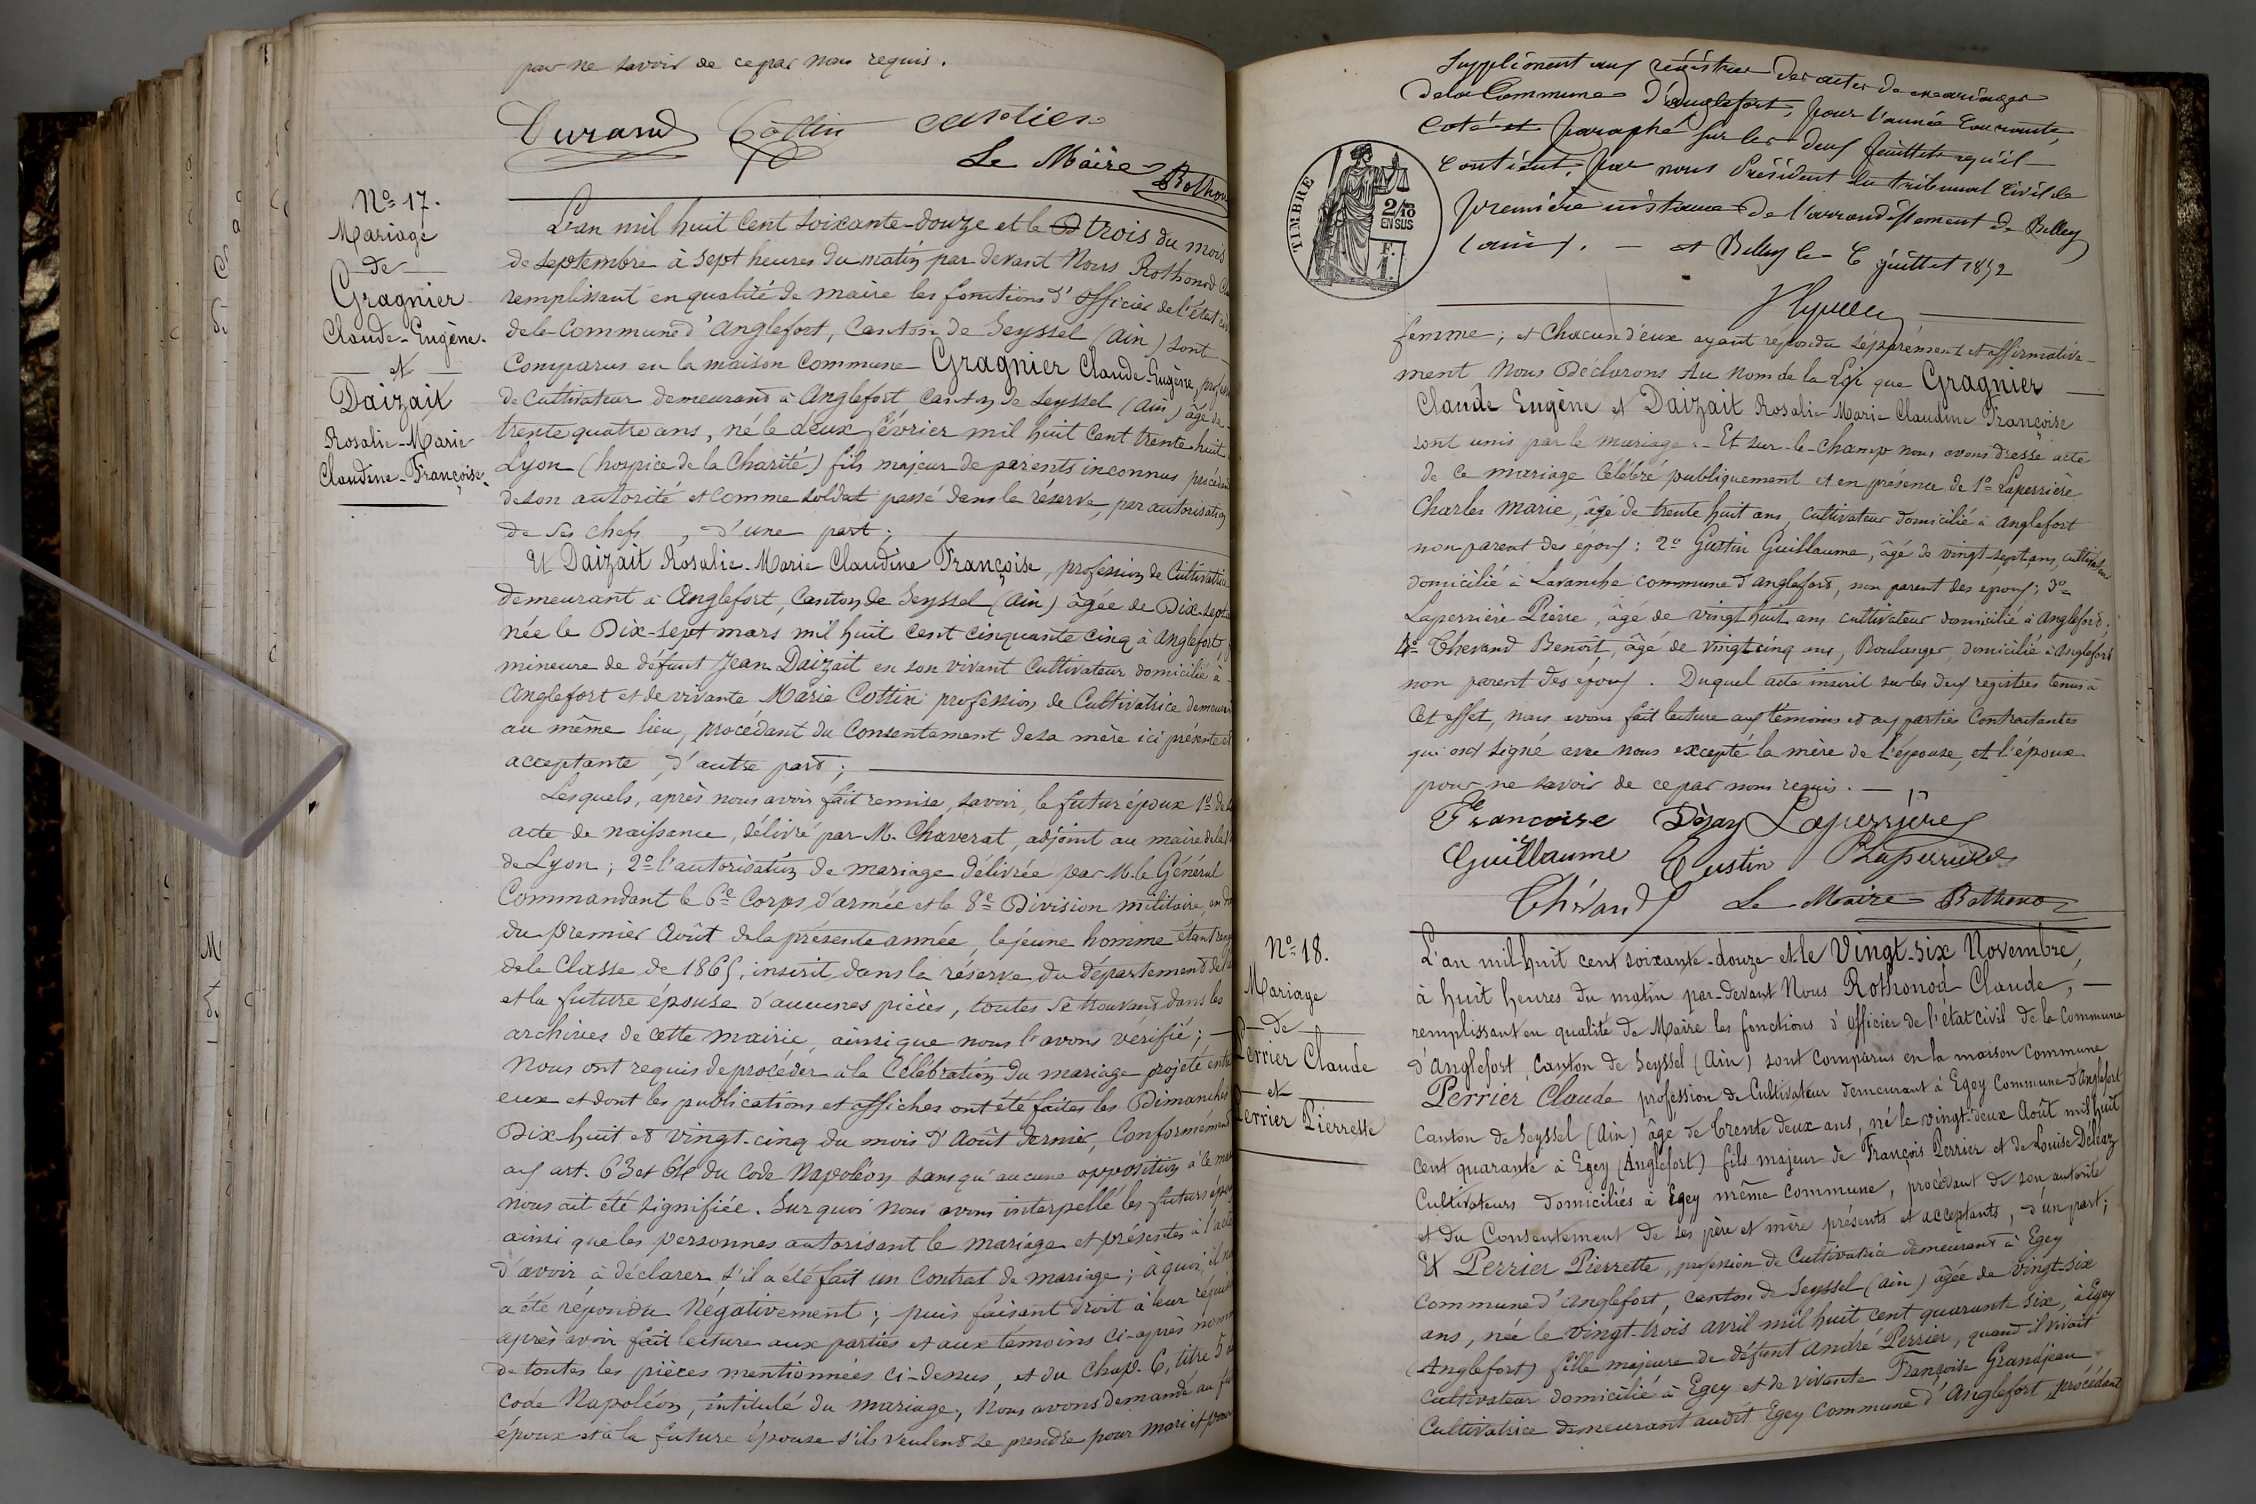 pour ne savoir de ce par nous requis.
Durand Cottin
Le Maire Rothonod
N° 17.
Mariage
de
Gragnier
Claude-Eugène.
et
Daizait
Rosalie-Marie
Claudine-Françoise.
L'an mil huit cent soixante-douze et le trois du mois
de septembre à sept heures du matin par devant Nous Rothonod
remplissant en qualité de maire les fonctions d'officier de l'état
de la commune d'Anglefort, canton de Seyssel (Ain) sont
Comparus en la maison commune Gragnier Claude-Eugène,
de cultivateur demeurant à Anglefort canton de Seyssel (Ain) âgé de
trente quatre ans, né le deux février mil huit cent trente huit
Lyon (hospice de la Charité) fils majeur de parents inconnus
de son autorité et comme soldat passé dans la réserve, par autorisation
de ses chefs, d'une part;
Et Daizait Rosalie-Marie Claudine Françoise, profession de Cultivatrice
demeurant à Anglefort, canton de Seyssel (Ain) âgée de Dix-sept
née le Dix-sept mars mil huit cent cinquante cinq à Anglefort
mineure de défunt Jean Daizait en son vivant cultivateur domicilié à
Anglefort et de vivante Marie Cottin profession de Cultivatrice
au même lieu, procédant du consentement de sa mère ici présente et
acceptante, d'autre part;
Lesquels, après nous avoir fait remise, savoir, le futur époux 1° de
acte de naissance, délivré par M. Chaverat, adjoint au maire de la
de Lyon; 2° l'autorisation de mariage délivrée par M. le Général
Commandant le 6e Corps d'armée et la 8e Division militaire,
du premier Août de la présente année, le jeune homme étant
de la Classe de 1865, inscrit dans la réserve du département de
et la future épouse d'aucunes pièces, toutes se trouvant dans les
archives de cette mairie, ainsi que nous l'avons vérifié;
Nous ont requis de procéder à la Célébration du mariage projeté entre
eux et dont les publications et affiches ont été faites les Dimanches
Dix huit et vingt-cinq du mois d'Août dernier, Conformément
aux art. 63 et 64 du code Napoléon sans qu'aucune opposition à ce
nous ait été signifiée. Sur quoi nous avons interpellé les futurs
ainsi que les personnes autorisant le mariage et présentes à
d'avoir à déclarer s'il a été fait un contrat de mariage; à quoi il
a été répondu Négativement; puis faisant droit à leur
après avoir fait lecture aux parties et aux témoins ci-après
de toutes les pièces mentionnées ci-dessus, et du Chap. 6, titre 5
code Napoléon, intitulé du mariage, Nous avons demandé au
époux et à la future épouse s'ils veulent se prendre pour mari et pour
Supplément aux registres des actes de mariages
de la Commune d'Anglefort, pour l'année Courante,
Coté et paraphé sur les deux feuillets qu'il
contient, par nous Président du tribunal civil de
première instance de l'arrondissement de Belley
(ain). et Belley le 6 juillet 1872
TIMBRE
2/10
EN SUS
F.
1.
femme; et Chacun d'eux ayant répondu séparément et affirmative-
ment Nous Déclarons Au nom de la Loi que Gragnier
Claude Eugène et Daizait Rosalie Marie Claudine Françoise
sont unis par le mariage. Et sur-le-champ nous avons dressé acte
de ce mariage célébré publiquement et en présence de 1° Laperrière
Charles Marie, âgé de trente huit ans, cultivateur domicilié à Anglefort
non parent des époux; 2° Gustin Guillaume, âgé de vingt-sept ans, cultivateur
domicilié à Lavanche commune d'Anglefort, non parent des époux; 3°
Laperrière Pierre, âgé de vingt huit ans cultivateur domicilié à Anglefort;
4° Thevand Benoît, âgé de vingt cinq ans, Boulanger, domicilié à Anglefort
non parent des époux. Duquel acte inscrit sur les deux registres tenus à
Cet effet, nous avons fait lecture aux témoins et aux parties Contractantes
qui ont signé avec nous excepté la mère de l'épouse, et l'époux
pour ne savoir de ce par nous requis.
Francoise Laperrière
Guillaume Gustin Laperrière
Thévand Le Maire Rothonod
N° 18.
Mariage
de
Perrier Claude
et
Perrier Pierrette
L'an mil huit cent soixante-douze et le Vingt-six Novembre,
à huit heures du matin par-devant Nous Rothonod Claude,
remplissant en qualité de Maire les fonctions d'officier de l'état civil de la commune
d'Anglefort, Canton de Seyssel (Ain) sont comparus en la maison commune
Perrier Claude profession de Cultivateur demeurant à Egey commune d'Anglefort
Canton de Seyssel (Ain) âgé de trente deux ans, né le vingt-deux Août mil huit
cent quarante à Egey (Anglefort) fils majeur de François Perrier et de Louise Déléaz
Cultivateurs domiciliés à Egey même commune, procédant de son autorité
et du Consentement de ses père et mère présents et acceptants, d'un part;
Et Perrier Pierrette, profession de Cultivatrice demeurant à Egey
commune d'Anglefort, canton de Seyssel (Ain) âgée de vingt-six
ans, née le vingt-trois avril mil huit cent quarante six, à Egey
(Anglefort) fille majeure de défunt André Perrier, quand il vivait
cultivateur domicilié à Egey et de vivante Françoise Grandjean
Cultivatrice demeurant audit Egey commune d'Anglefort, procédant